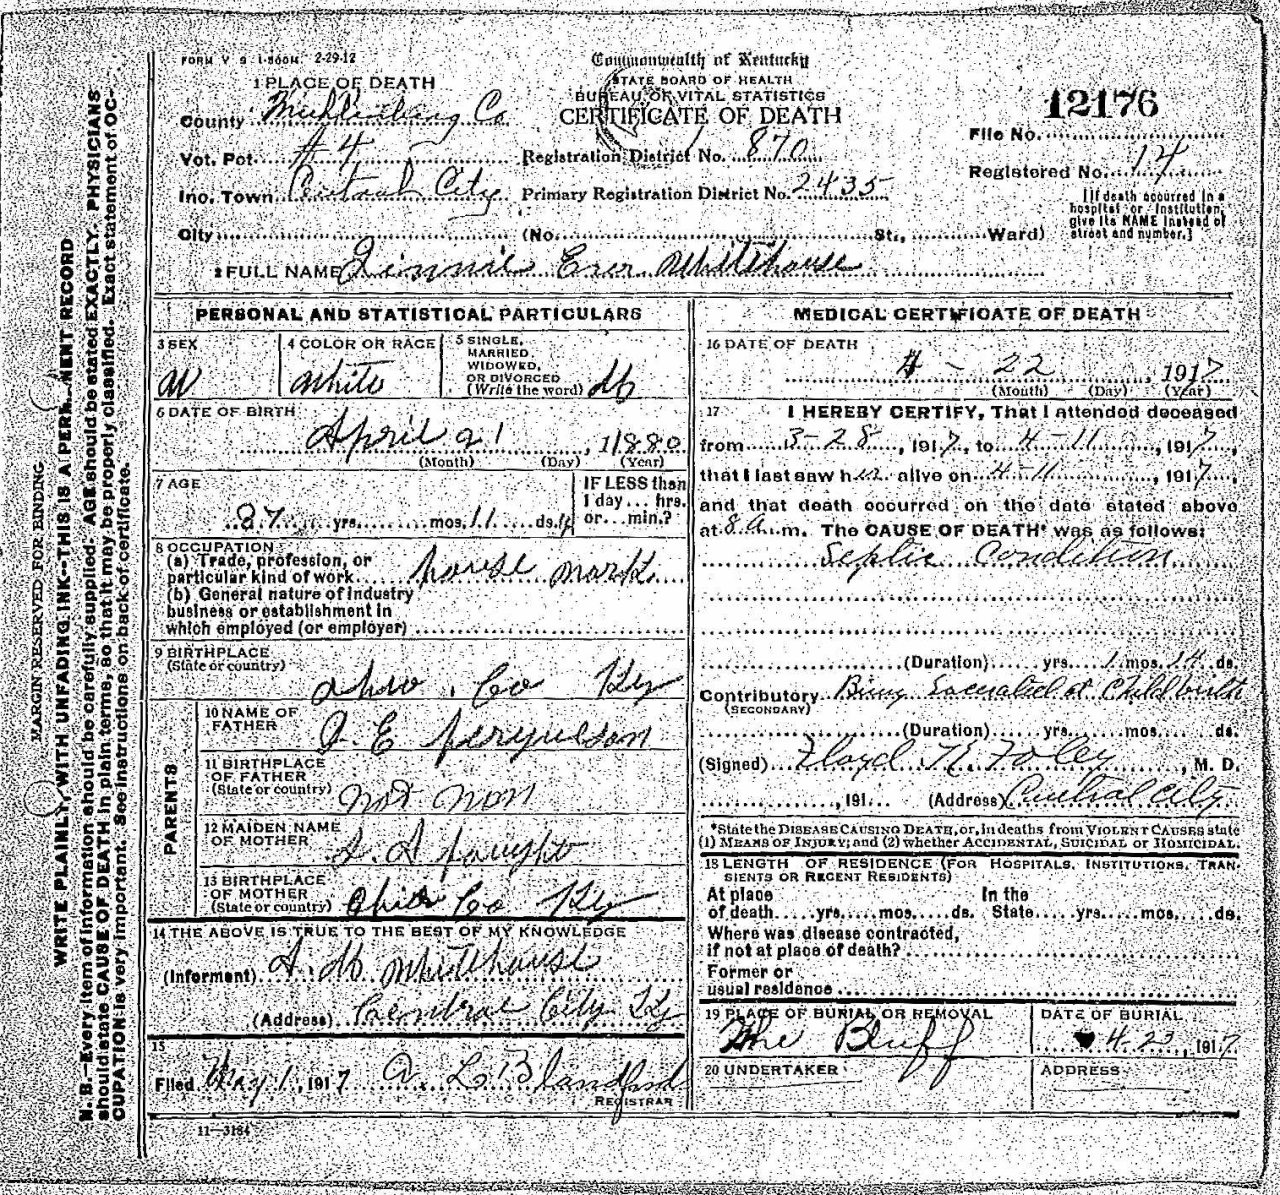 FORM V S 1-500M. 2-29-12
Commonwealth of Kentucky
STATE BOARD OF HEALTH
BUREAU OF VITAL STATISTICS
CERTIFICATE OF DEATH
12176
File No.
Registered No. 14
[If death occurred in a
hospital or institution,
give its NAME instead of
street and number.]
1 PLACE OF DEATH
County Muhlenberg Co
Vot. Pct. #4 Registration District No. 870
Inc. Town Central City Primary Registration District No. 2435
City (No. St., Ward)
2 FULL NAME Whitehouse
PERSONAL AND STATISTICAL PARTICULARS
3 SEX
4 COLOR OR RACE
white
5 SINGLE,
MARRIED,
WIDOWED,
OR DIVORCED
(Write the word)
6 DATE OF BIRTH
April 21, 1880
(Month) (Day) (Year)
7 AGE
yrs. mos. 11 ds.
IF LESS than
1 day ... hrs.
or ... min.?
8 OCCUPATION
(a) Trade, profession, or
particular kind of work house work
(b) General nature of industry
business or establishment in
which employed (or employer)
9 BIRTHPLACE
(State or country)
Ohio Co Ky
PARENTS
10 NAME OF
FATHER
11 BIRTHPLACE
OF FATHER
(State or country)
not non
12 MAIDEN NAME
OF MOTHER
13 BIRTHPLACE
OF MOTHER
(State or country) Ohio Co Ky
14 THE ABOVE IS TRUE TO THE BEST OF MY KNOWLEDGE
(Informent) Whitehouse
(Address) Central City Ky
15
Filed May 1, 1917 A. L. Blandford
REGISTRAR
11—3184
MEDICAL CERTIFICATE OF DEATH
16 DATE OF DEATH
4 - 22, 1917
(Month) (Day) (Year)
17 I HEREBY CERTIFY, That I attended deceased
from 3-28, 1917, to 4-11, 1917,
that I last saw her alive on 4-11, 1917,
and that death occurred on the date stated above
at 8 a. m. The CAUSE OF DEATH* was as follows:
Septic Condition
(Duration) yrs. 1 mos. 14 ds.
Contributory Being Lacerated at Childbirth
(SECONDARY)
(Duration) yrs. mos. ds.
(Signed) Floyd N. Foley, M. D.
, 191 (Address) Central City
*State the DISEASE CAUSING DEATH, or, in deaths from VIOLENT CAUSES state
(1) MEANS OF INJURY; and (2) whether ACCIDENTAL, SUICIDAL OR HOMICIDAL.
18 LENGTH OF RESIDENCE (FOR HOSPITALS, INSTITUTIONS, TRAN-
SIENTS OR RECENT RESIDENTS)
At place In the
of death yrs. mos. ds. State yrs. mos. ds.
Where was disease contracted,
if not at place of death?
Former or
usual residence
19 PLACE OF BURIAL OR REMOVAL
The Bluff
DATE OF BURIAL
4-23, 1917
20 UNDERTAKER
ADDRESS
MARGIN RESERVED FOR BINDING
WRITE PLAINLY, WITH UNFADING INK--THIS IS A PERMANENT RECORD
N. B.--Every item of information should be carefully supplied. AGE should be stated EXACTLY. PHYSICIANS
should state CAUSE OF DEATH in plain terms, so that it may be properly classified. Exact statement of OC-
CUPATION is very important. See instructions on back of certificate.